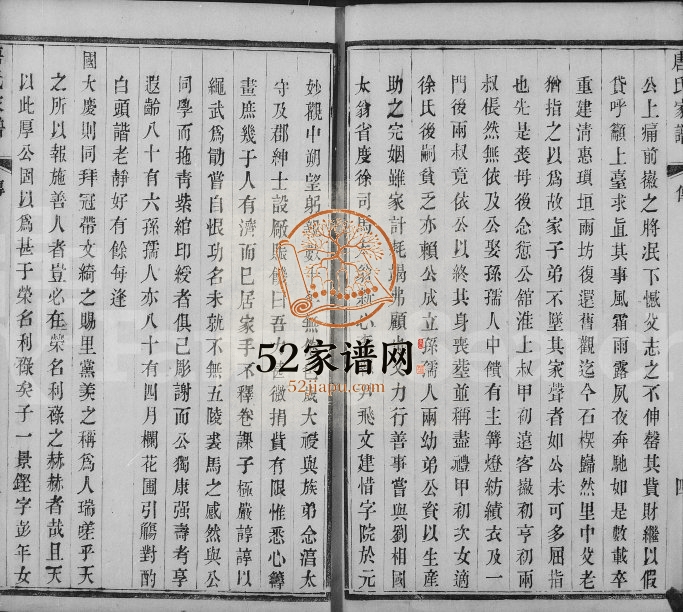 唐氏家譜
傳
四
公上痛前徽之將泯下憾父志之不伸罄其貲財繼以假
貸呼籲上臺求直其事風霜雨露夙夜奔馳如是數載卒
重建清惠瑣垣兩坊復還舊觀迄今石楔巋然里中父老
猶指之以爲故家子弟不墜其家聲者如公未可多屈指
也先是喪母後念愆公舘淮上叔甲初遠客嶽初亨初兩
叔倀然無依及公娶孫孺人中饋有主篝燈紡績衣及一
門後兩叔竟依公以終其身喪塟並稱盡禮甲初次女適
徐氏後嗣貧乏亦賴公成立孫孺人兩幼弟公資以生產
助之完姻雖家計耗竭弗顧也又力行善事嘗與劉相國
太翁省度徐司馬太翁 心 丹飛文建惜字院於元
妙觀中朔望躬 數 無 歲大祲與族弟念滈太
守及郡紳士設廠賑饑曰吾力雖微捐貲有限惟悉心籌
畫庶幾子人有濟而已居家手不釋卷課子極嚴諄諄以
繩武爲勖嘗自恨功名未就不無五陵裘馬之感然與公
同學而拖靑紫綰印綬者俱已彫謝而公獨康强壽考享
遐齡八十有六孫孺人亦八十有四月欄花圃引觴對酌
白頭諧老靜好有餘每逢
國大慶則同拜冠帶文綺之賜里黨羙之稱爲人瑞嗟乎天
之所以報施善人者豈必在榮名利祿之赫赫者哉且天
以此厚公固以爲甚于榮名利祿矣子一景鏗字彭年女
唐氏家譜
傳
52家谱网
52jiapu.com